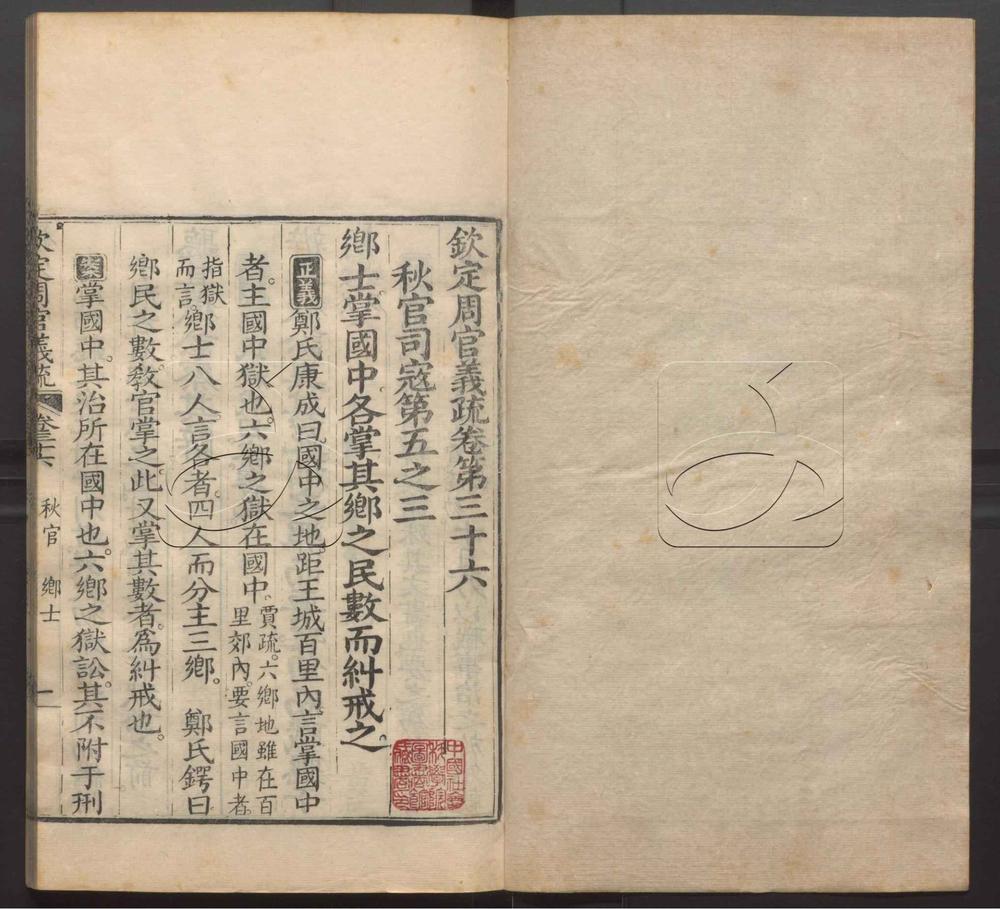 欽定周官義疏卷第三十六
秋官司寇第五之三
鄉士掌國中各掌其鄉之民數而糾戒之
正義鄭氏康成曰國中之地距王城百里內言掌國中
者主國中獄也六鄉之獄在國中賈疏六鄉地雖在百里郊內要言國中者
指獄而言鄉士八人言各者四人而分主三鄉 鄭氏鍔曰
鄉民之數教官掌之此又掌其數者為糾戒也
案掌國中其治所在國中也六鄉之獄訟其不附于刑
欽定周官義疏 卷三十六 秋官 鄉士 一
中國社會科學院圖書館藏書印